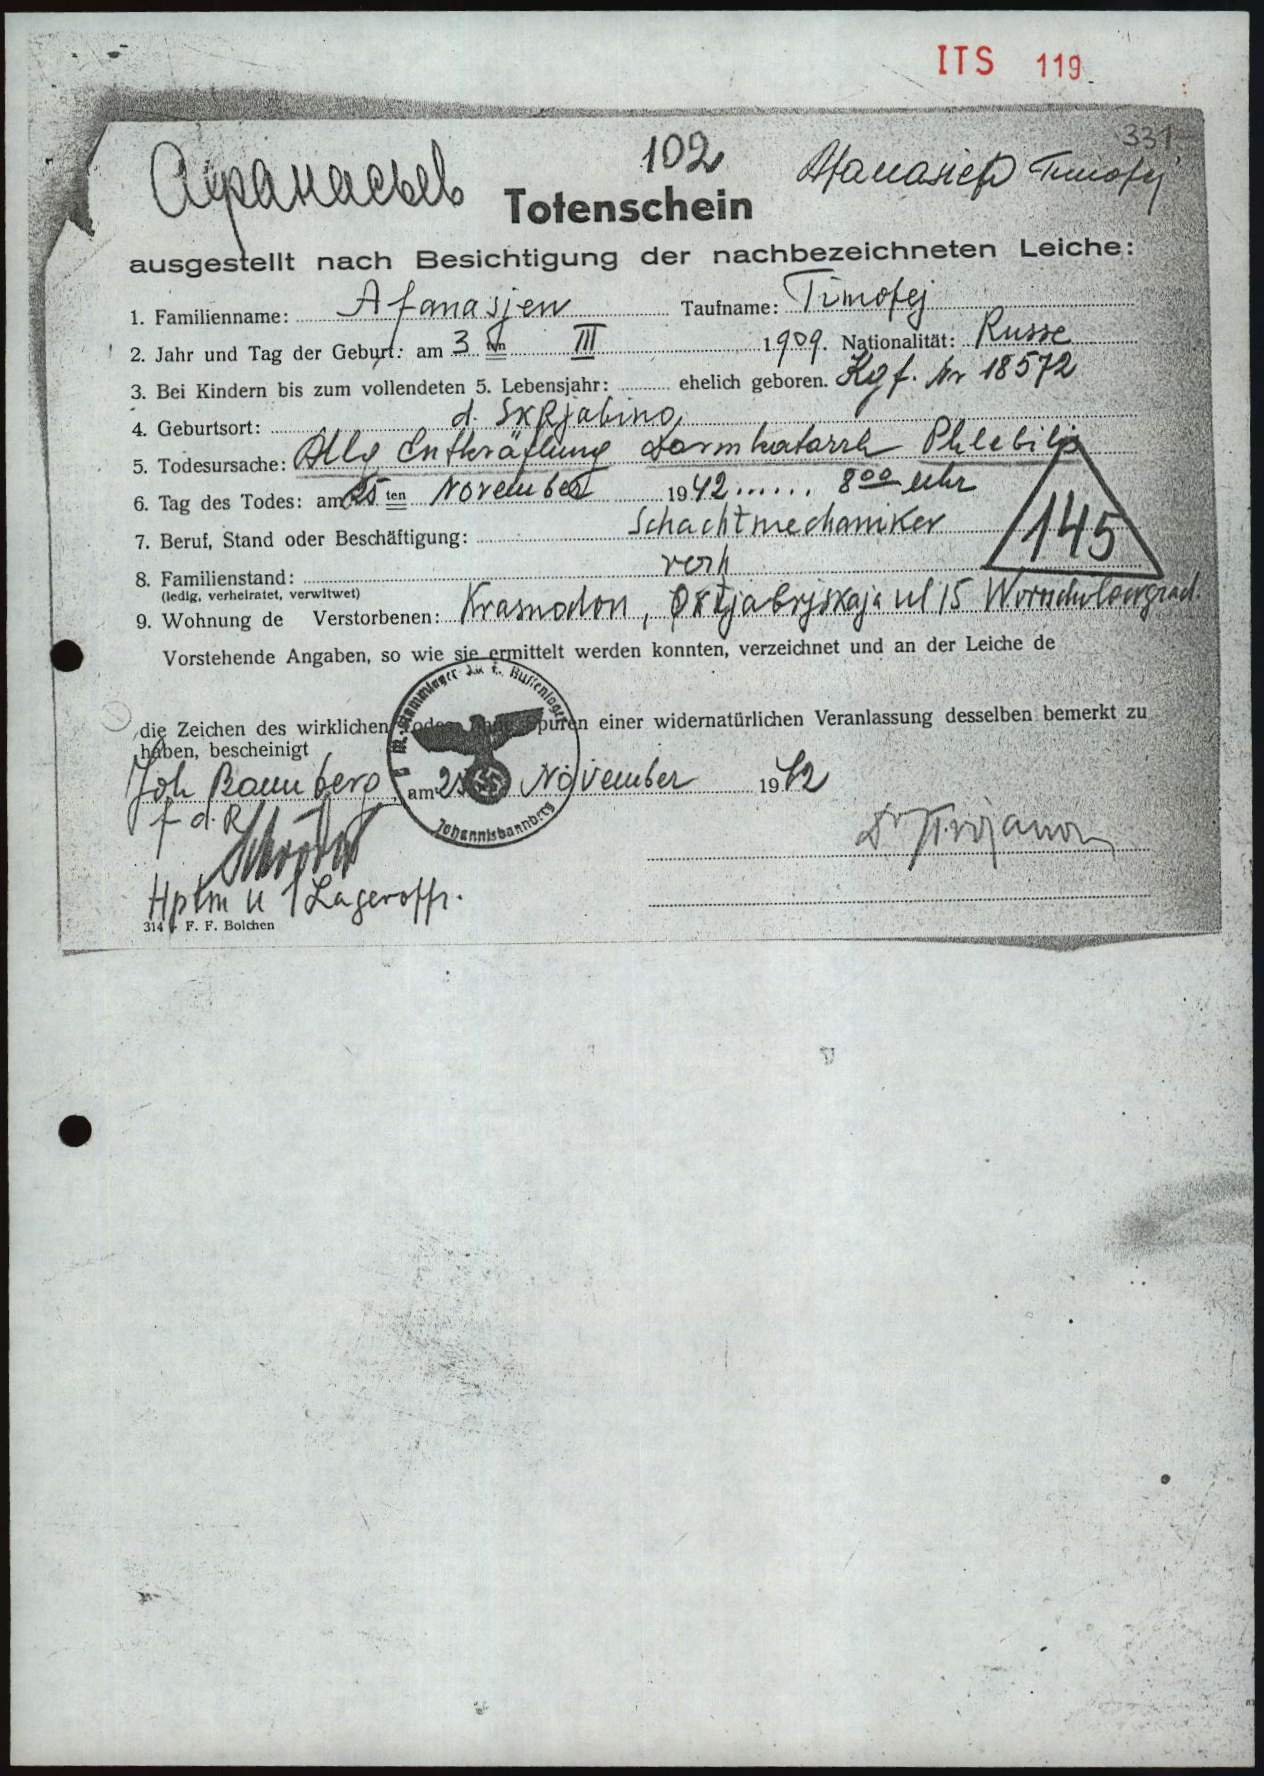 ITS 119
331
102
Афанасьев
Afanasieff Timofej
Totenschein
ausgestellt nach Besichtigung der nachbezeichneten Leiche:
1. Familienname: Afanasjew Taufname: Timofej
2. Jahr und Tag der Geburt: am 3 ten III 1909. Nationalität: Russe
3. Bei Kindern bis zum vollendeten 5. Lebensjahr: ehelich geboren. Kgf. Nr 18572
4. Geburtsort: d. Skrjabino
5. Todesursache: Allg Entkräftung Darmkatarrh Phlebitis
6. Tag des Todes: am 25 ten November 1942...... 8 00 Uhr
145
7. Beruf, Stand oder Beschäftigung: Schachtmechaniker
8. Familienstand: verh
(ledig, verheiratet, verwitwet)
9. Wohnung de Verstorbenen: Krasnodon, Oktjabrjskaja ul 15
Vorstehende Angaben, so wie sie ermittelt werden konnten, verzeichnet und an der Leiche de
die Zeichen des wirklichen Todes ohne Spuren einer widernatürlichen Veranlassung desselben bemerkt zu
haben, bescheinigt
Joh Bannberg, am 25 November 1942
Johannisbannberg
f d. R
Hptm u Lageroffz.
314 F. F. Bolchen